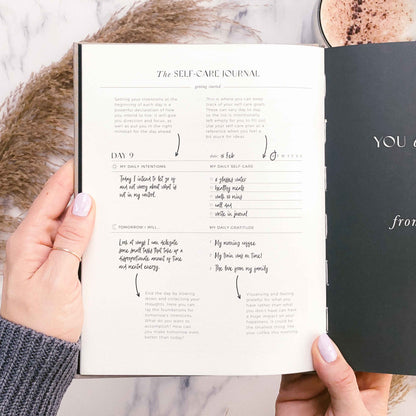 The SELF-CARE JOURNAL
getting started
Setting your intentions at the
beginning of each day is a
powerful declaration of how
you intend to live. It will give
you direction and focus, as
well as put you in the right
mindset for the day ahead.
This is where you can keep
track of your self-care goals.
These can vary day to day
so the list is intentionally
left empty for you to fill out.
Use your self-care plan as a
reference when you feel a
bit stuck for ideas.
DAY 9
MY DAILY INTENTIONS
Today I intend to let go of
and not worry about what is
not in my control.
MY DAILY SELF-CARE
8 glasses water
healthy meals
walk 20 mins
call dad
write in journal
TOMORROW I WILL...
Look at ways I can delegate
some small tasks that take up a
disproportionate amount of time
and mental energy.
MY DAILY GRATITUDE
My morning coffee
My train was on time!
The love from my family
End the day by slowing
down and collecting your
thoughts. Here you can
lay the foundations for
tomorrow's intentions.
What do you want to
accomplish? How can
you make tomorrow even
better than today?
Visualising and feeling
grateful for what you
have rather than what you
don't have can have
a huge impact on your
happiness. It could be
the smallest thing like
your coffee this morning.
YOU
from